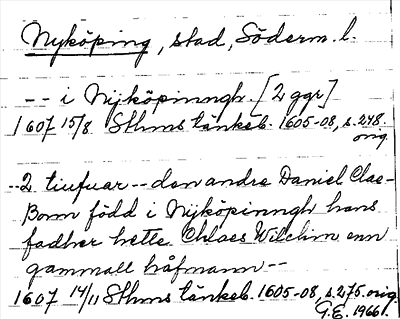 Nyköping, stad, Söderm. l.
-- i Nijköpinngh. [2 ggr]
1607 15/8 Sthms tänkeb. 1605-08, s. 248.
orig.
--2 tiufuar -- den andre Daniel Clae-
Bonn född i Nijköpinngh hans
fadher hette Chlaes Wilchin enn
gammall håfmann --
1607 14/11 Sthms tänkeb. 1605-08, s. 275. orig.
G.E. 1966.